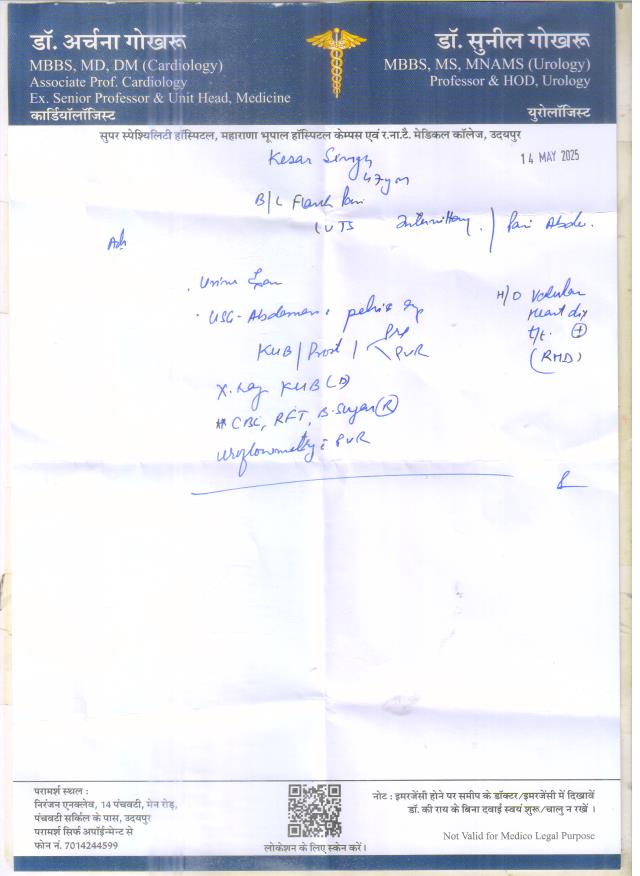 डॉ. अर्चना गोखरू
MBBS, MD, DM (Cardiology)
Associate Prof. Cardiology
Ex. Senior Professor & Unit Head, Medicine
कार्डियॉलॉजिस्ट
डॉ. सुनील गोखरू
MBBS, MS, MNAMS (Urology)
Professor & HOD, Urology
युरोलॉजिस्ट
सुपर स्पेश्यिलिटी हॉस्पिटल, महाराणा भूपाल हॉस्पिटल केम्पस एवं र.ना.टै. मेडिकल कॉलेज, उदयपुर
Kesar Singh
14 MAY 2025
47y m
B/L Flank Pain
LUTS
/ Pain Abdo.
Adv
. Urine Exam
. USG - Abdomen & pelvis
KUB / Prost / Pre
PVR
X-ray KUB (D)
CBC, RFT, B. Sugar (R)
Uroflowmetry c PVR
H/O Valvular
Heart dis
t/t. +
(RHD)
परामर्श स्थल :
निरंजन एनक्लेव, 14 पंचवटी, मेन रोड़,
पंचवटी सर्किल के पास, उदयपुर
परामर्श सिर्फ अपॉईन्मेन्ट से
फोन नं. 7014244599
लोकेशन के लिए स्केन करें।
नोट : इमरजेंसी होने पर समीप के डॉक्टर/इमरजेंसी में दिखावें
डॉ. की राय के बिना दवाई स्वयं शुरू/चालु न रखें ।
Not Valid for Medico Legal Purpose